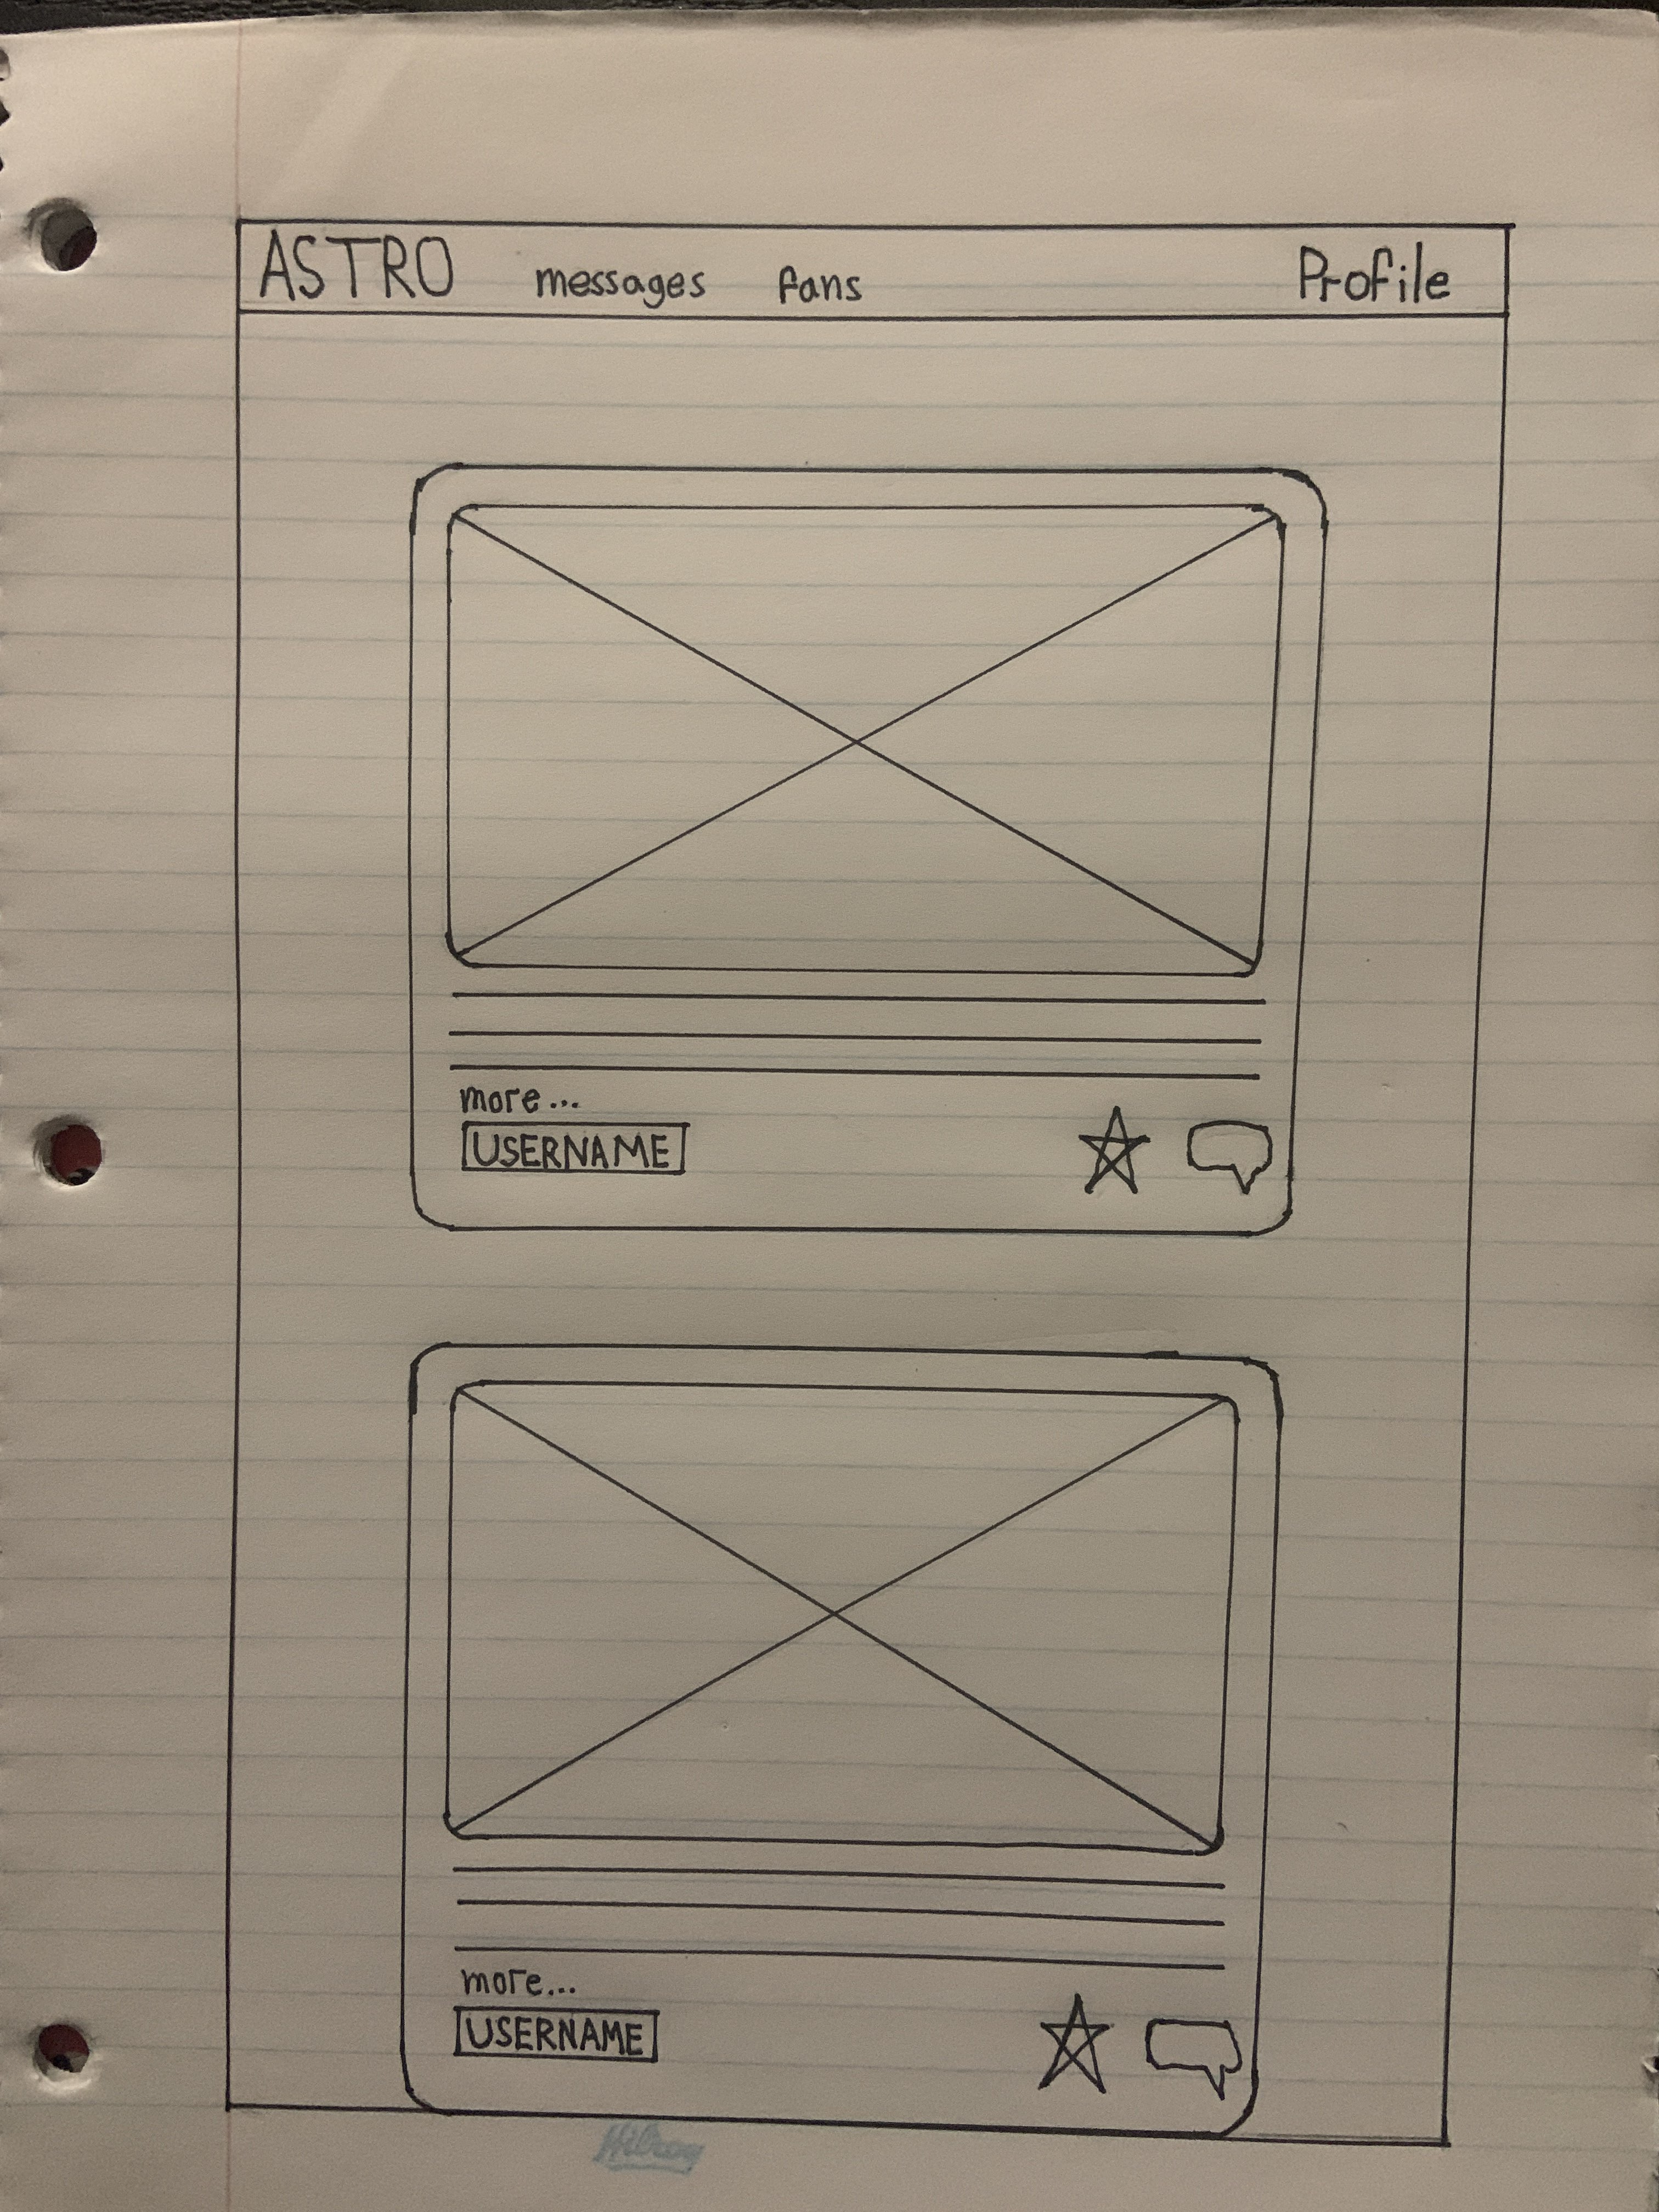 ASTRO messages fans Profile
more...
USERNAME
more...
USERNAME
Hilroy